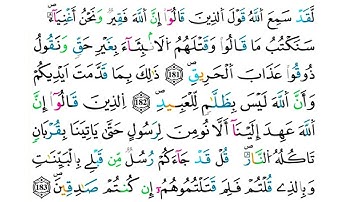 لَقَدْ سَمِعَ اللَّهُ قَوْلَ الَّذِينَ قَالُوا إِنَّ اللَّهَ فَقِيرٌ وَنَحْنُ أَغْنِيَاءُ ۘ
سَنَكْتُبُ مَا قَالُوا وَقَتْلَهُمُ الْأَنْبِيَاءَ بِغَيْرِ حَقٍّ وَنَقُولُ
ذُوقُوا عَذَابَ الْحَرِيقِ ﴿181﴾ ذَلِكَ بِمَا قَدَّمَتْ أَيْدِيكُمْ
وَأَنَّ اللَّهَ لَيْسَ بِظَلَّامٍ لِلْعَبِيدِ ﴿182﴾ الَّذِينَ قَالُوا إِنَّ
اللَّهَ عَهِدَ إِلَيْنَا أَلَّا نُؤْمِنَ لِرَسُولٍ حَتَّى يَأْتِيَنَا بِقُرْبَانٍ
تَأْكُلُهُ النَّارُ ۗ قُلْ قَدْ جَاءَكُمْ رُسُلٌ مِنْ قَبْلِي بِالْبَيِّنَاتِ
وَبِالَّذِي قُلْتُمْ فَلِمَ قَتَلْتُمُوهُمْ إِنْ كُنْتُمْ صَادِقِينَ ﴿183﴾